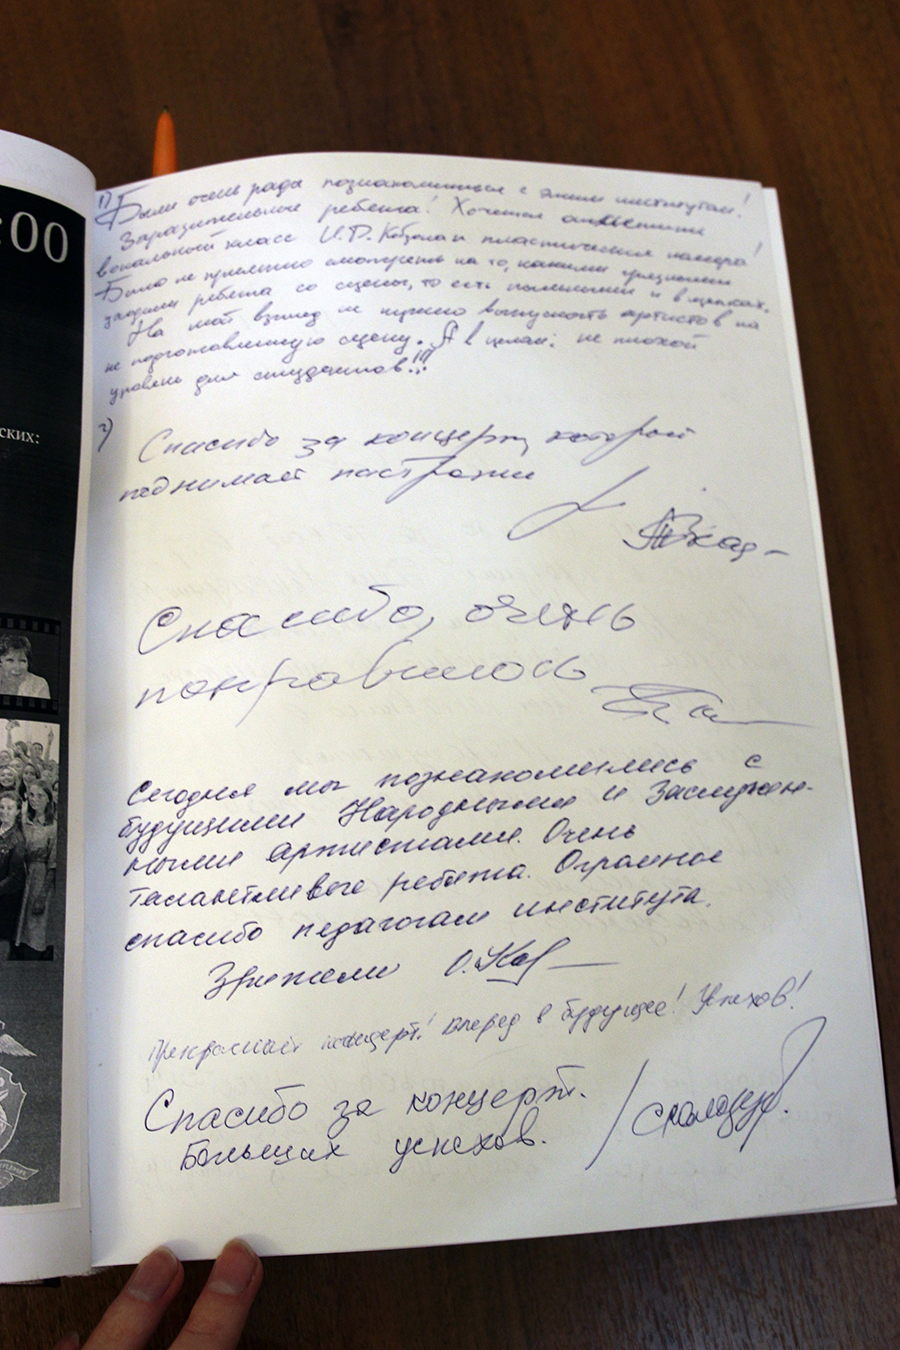 :00
ских:
1) Были очень рада познакомиться с этим институтом!
Заразительные ребята! Хочется отметить
вокальный класс И.Д. Кобзона и пластические номера!
Было не приятно смотреть на то, какими
ребята со сцены, то есть пыльными и в
На мой взгляд не нужно выпускать артистов на
не подготовленную сцену. А в целом: не плохой
уровень для студентов!!!
2) Спасибо за концерт, который
поднимает
Спасибо, очень
понравилось
Сегодня мы познакомились с
будущими Народными и Заслужен-
ными артистами. Очень
талантливые ребята. Огромное
спасибо педагогам института.
Зрители
Прекрасный концерт! Вперед в будущее! Успехов!
Спасибо за концерт.
Больших успехов.